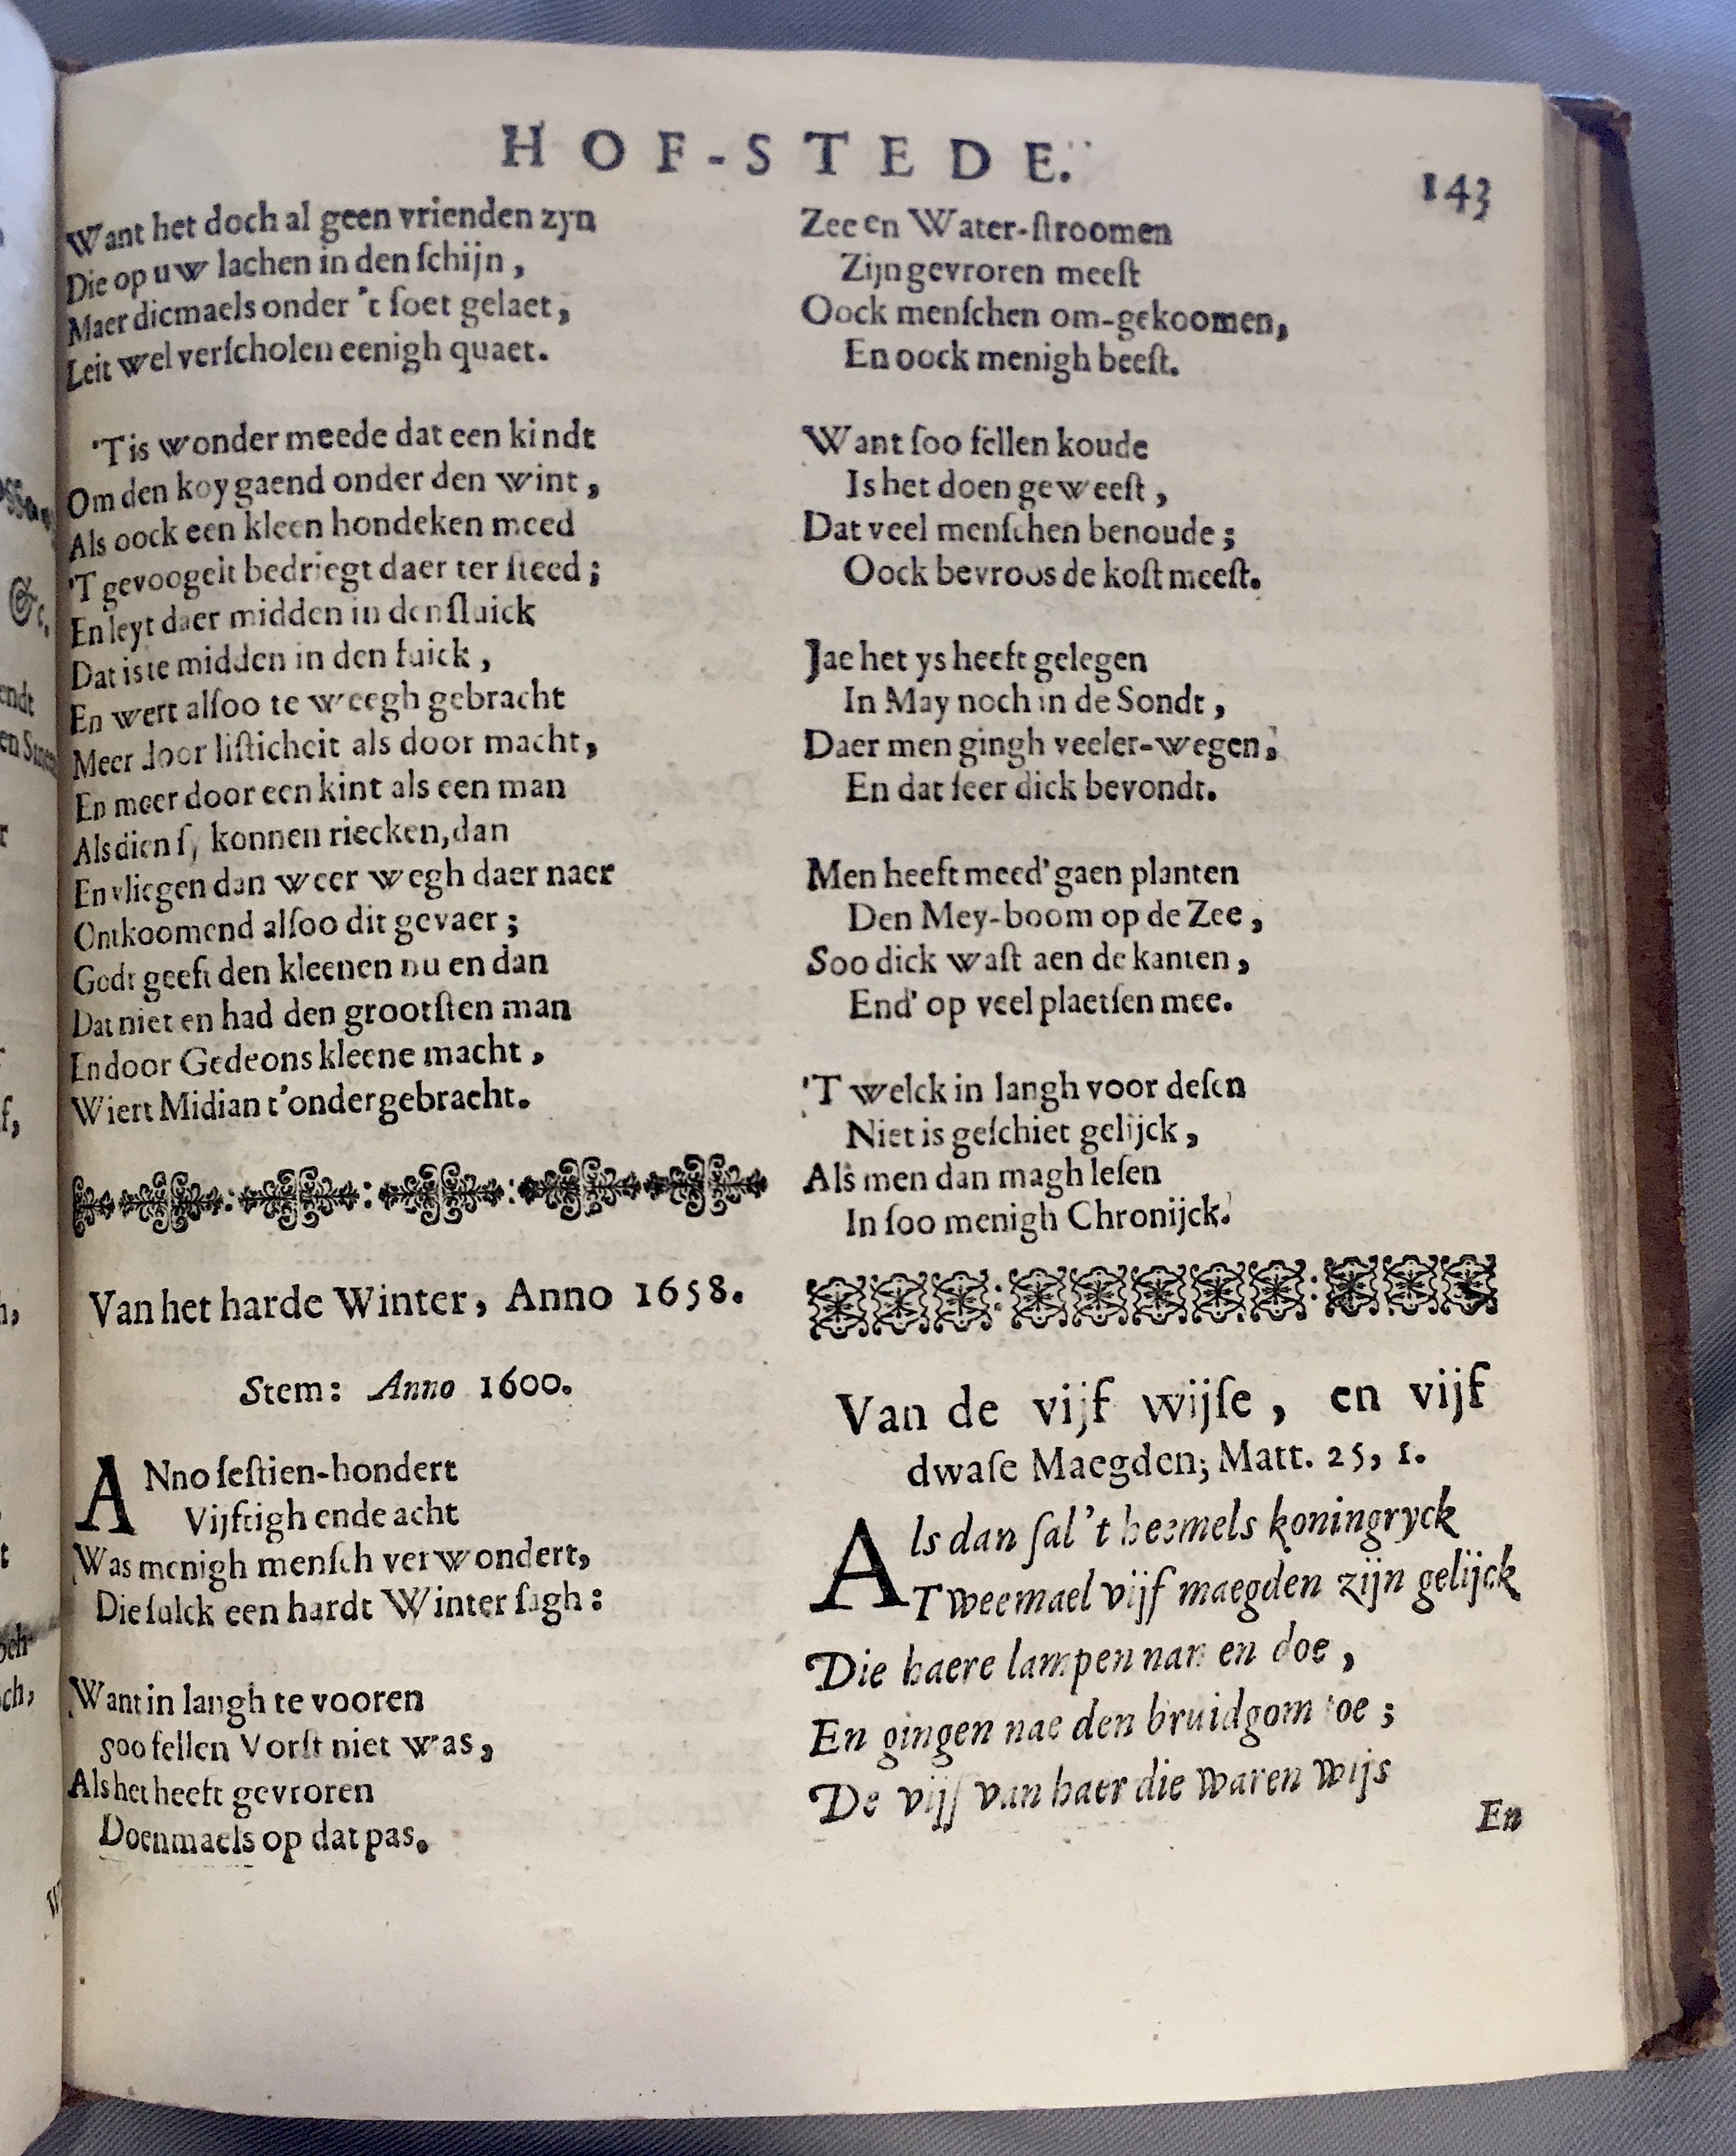 HOF-STEDE.
143
Want het doch al geen vrienden zyn
Die op uw lachen in den ſchijn,
Maer dicmaels onder 't ſoet gelaet,
Leit wel verſcholen eenigh quaet.
'Tis wonder meede dat een kindt
Om den koy gaend onder den wint,
Als oock een kleen hondeken meed
'T gevoogelt bedriegt daer ter ſteed;
En leyt daer midden in den ſluick
Dat is te midden in den fuick,
En wert alſoo te weegh gebracht
Meer door liſticheit als door macht,
En meer door een kint als een man
Als dien ſy konnen riecken, dan
En vliegen dan weer wegh daer naer
Ontkoomend alſoo dit gevaer;
Godt geeft den kleenen nu en dan
Dat niet en had den grootſten man
En door Gedeons kleene macht,
Wiert Midian t'ondergebracht.
Van het harde Winter, Anno 1658.
Stem: Anno 1600.
ANno ſeſtien-hondert
Vijftigh ende acht
Was menigh menſch verwondert,
Die ſulck een hardt Winter ſagh:
Want in langh te vooren
Soo fellen Vorſt niet was,
Als het heeft gevroren
Doenmaels op dat pas.
Zee en Water-ſtroomen
Zijn gevroren meeſt
Oock menſchen om-gekoomen,
En oock menigh beeſt.
Want ſoo fellen koude
Is het doen geweeſt,
Dat veel menſchen benoude;
Oock bevroos de koſt meeſt.
Jae het ys heeft gelegen
In May noch in de Sondt,
Daer men gingh veeler-wegen,
En dat ſeer dick bevondt.
Men heeft meed' gaen planten
Den Mey-boom op de Zee,
Soo dick waſt aen de kanten,
End' op veel plaetſen mee.
'T welck in langh voor deſen
Niet is geſchiet gelijck,
Als men dan magh leſen
In ſoo menigh Chronijck.
Van de vijf wijſe, en vijf
dwaſe Maegden; Matt. 25, 1.
Als dan ſal 't heemels koningryck
Tweemael vijf maegden zijn gelijck
Die haere lampen nan en doe,
En gingen nae den bruidgom toe;
De vijf van haer die waren wijs
En